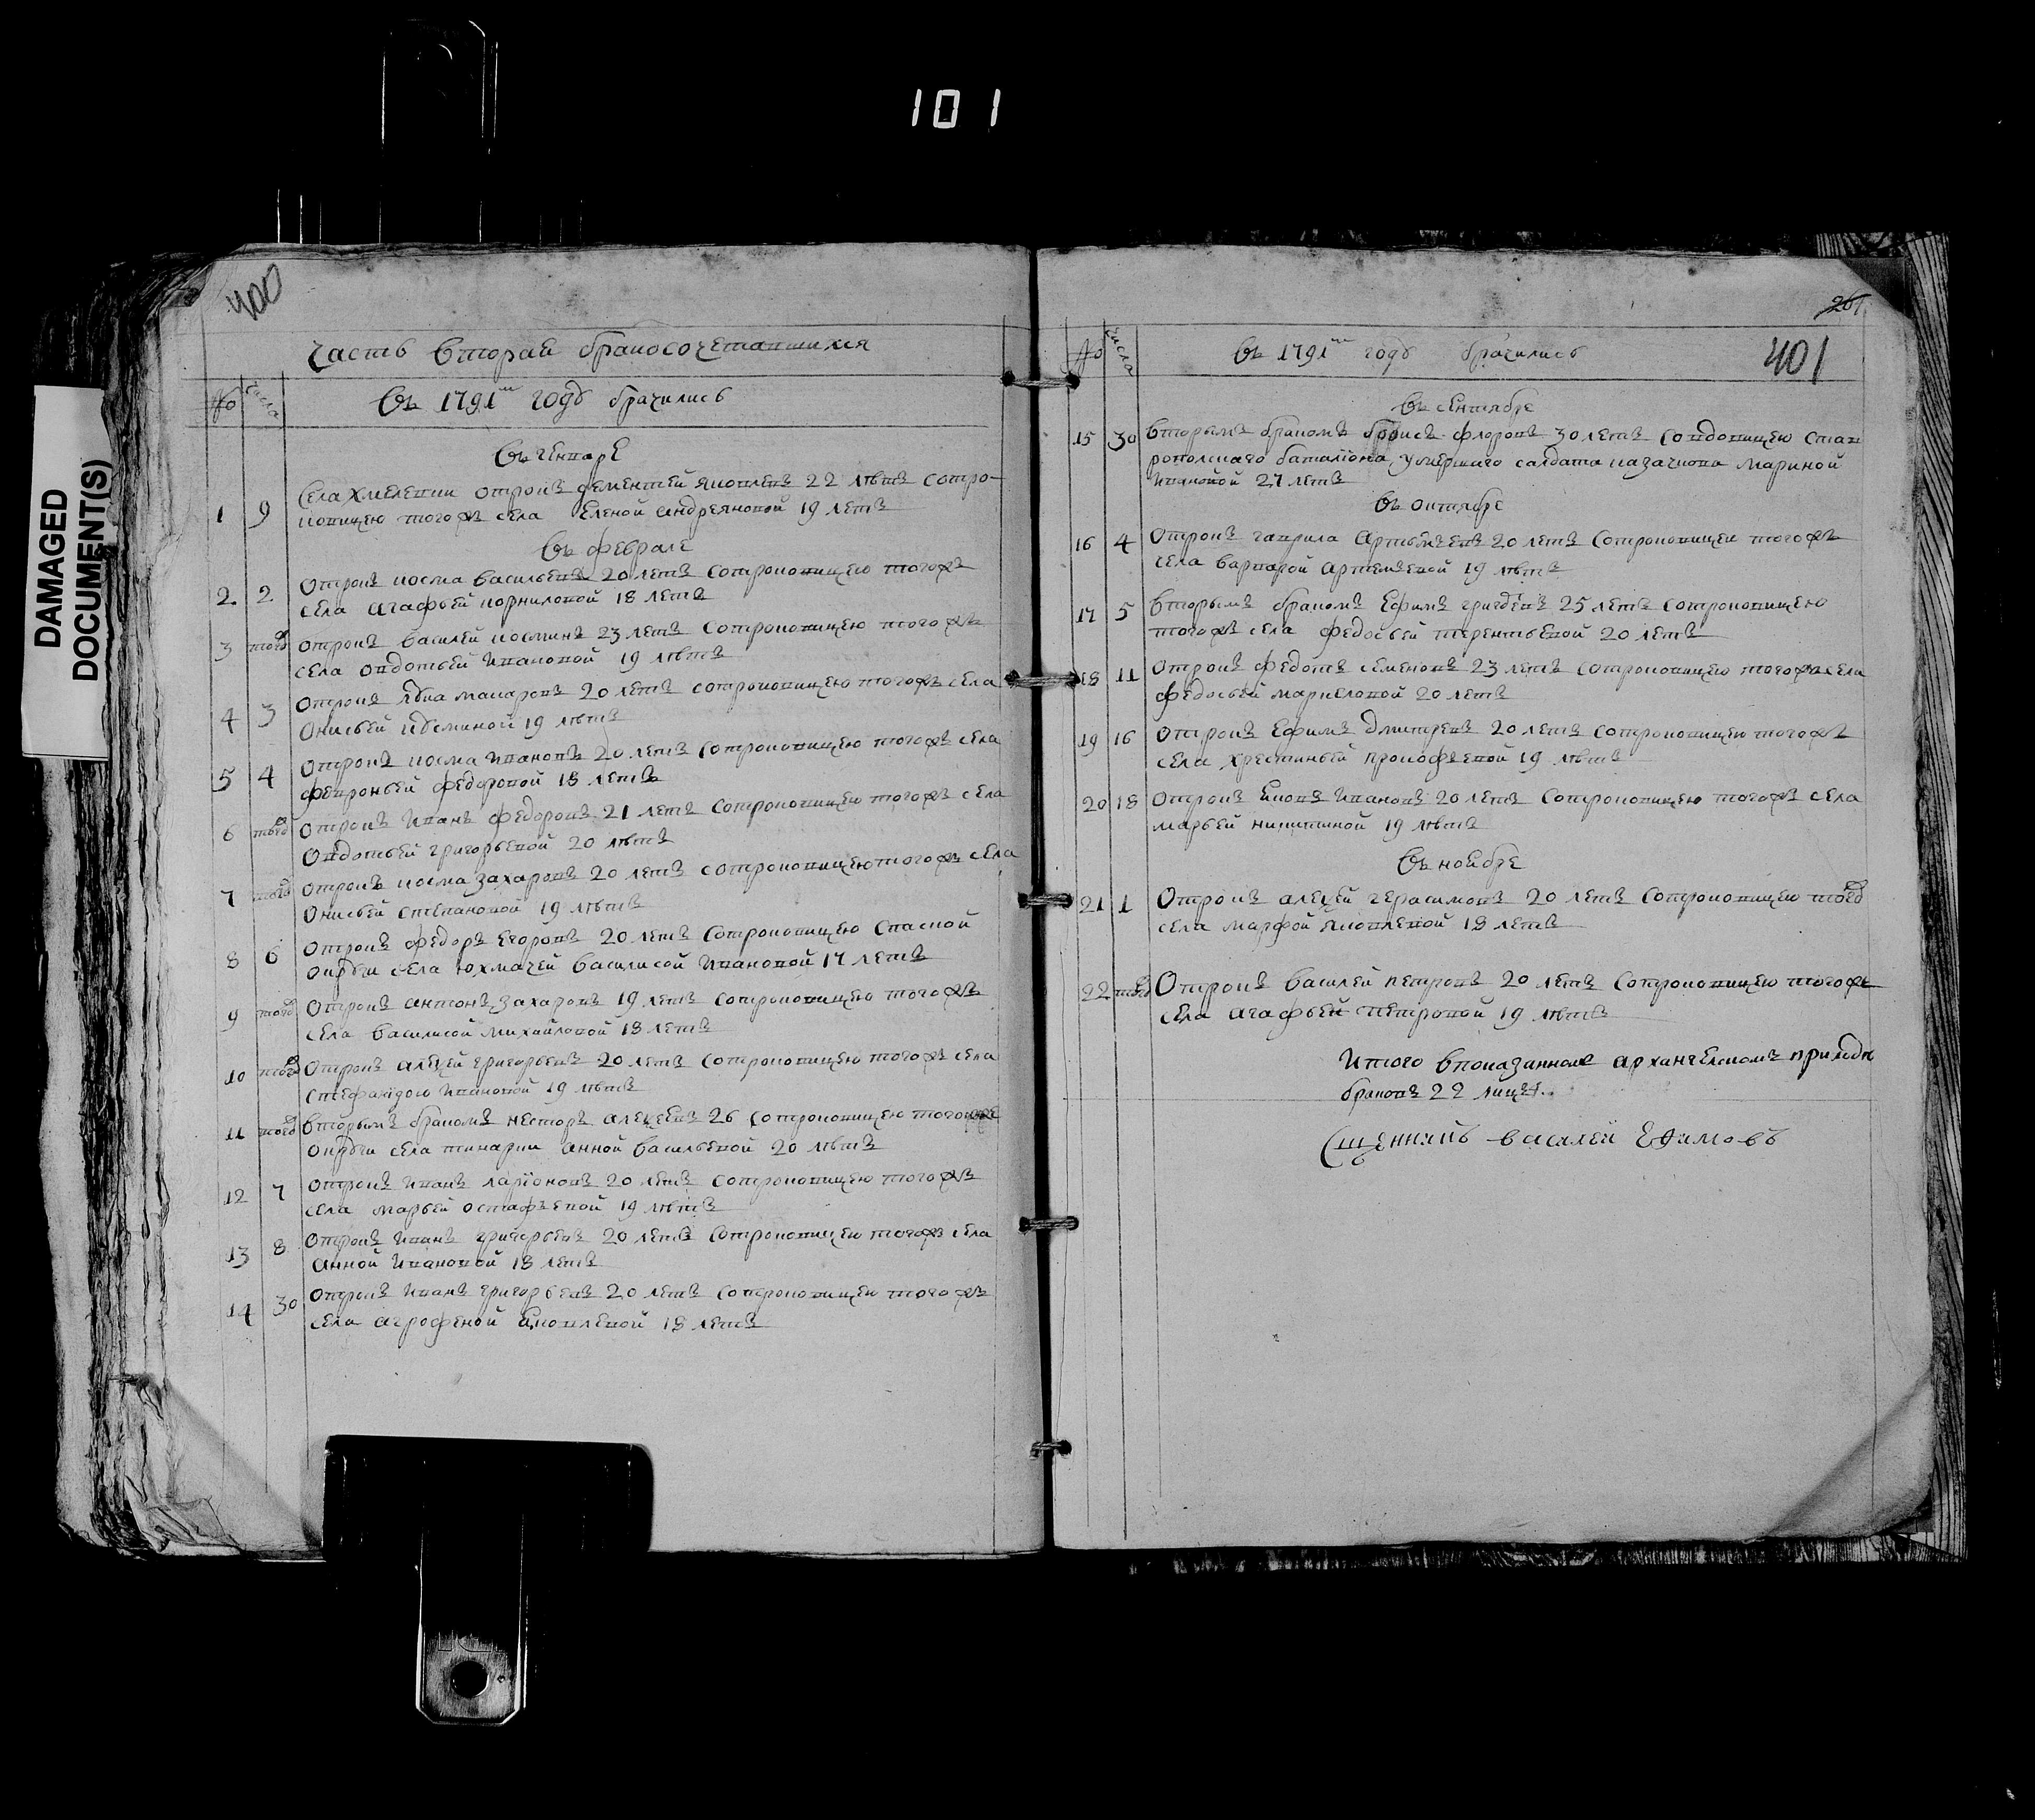 101
DAMAGED
DOCUMENT(S)
400
Часть вторая бракосочетавшихся
№ числа
Въ 1791м году брачились
Въ генваре
1 9 Села Хмелевки отрокъ дементей яковлевъ 22 летъ сотро-
ковицею того жъ села Еленой андреяновой 19 летъ
Въ феврале
2 2 Отрокъ косма васильевъ 20 летъ сотроковицею того жъ
села агафьей корниловой 18 летъ
3 тоѣд отрокъ василей косминъ 23 летъ сотроковицею того жъ
села овдотьей Ивановой 19 летъ
4 3 Отрокъ лука макаровъ 20 летъ сотроковицею того жъ села
Онисьей кузминой 19 летъ
5 4 Отрокъ косма Ивановъ 20 летъ сотроковицею того жъ села
февроньей федоровой 18 летъ
6 тоѣд отрокъ Иванъ федоровъ 21 летъ сотроковицею того жъ села
Овдотьей григорьевой 20 летъ
7 тоѣд отрокъ косма захаровъ 20 летъ сотроковицею того жъ села
Онисьей степановой 19 летъ
8 6 Отрокъ федоръ Егоровъ 20 летъ сотроковицею Спаской
округи села юхмачей василисой Ивановой 17 летъ
9 тоѣд Отрокъ антонъ захаровъ 19 летъ сотроковицею того жъ
села василисой михайловой 18 летъ
10 тоѣд Отрокъ алеѯей григорьевъ 20 летъ сотроковицею того жъ села
стефанідою Ивановой 19 летъ
11 тоѣд вторымъ бракомъ несторъ алеѯеевъ 26 сотроковицею того же
округи села анной васильевой 20 летъ
12 7 Отрокъ Иванъ ларіоновъ 20 летъ сотроковицею того жъ
села марьей остафьевой 19 летъ
13 8 Отрокъ Иванъ григорьевъ 20 летъ сотроковицею того жъ села
анной Ивановой 18 летъ
14 30 Отрокъ Иванъ григорьевъ 20 летъ сотроковицею того жъ
села агрофеной яковлевой 18 летъ
261
401
№ числа
Въ 1791м году брачились
Въ сентябре
15 30 вторымъ бракомъ борисъ флоровъ 30 летъ совдовицею став
ропольскаго баталіона умершаго салдата казачкова мариной
Ивановой 27 летъ
Въ октябре
16 4 Отрокъ гаврила артемьевъ 20 летъ сотроковицею того жъ
села варварой артемьевой 19 летъ
17 5 вторымъ бракомъ Ефимъ 25 летъ сотроковицею
того жъ села федосьей терентьевой 20 летъ
18 11 Отрокъ федотъ семеновъ 23 летъ сотроковицею того жъ села
федосьей маркеловой 20 летъ
19 16 Отрокъ Ефимъ дмитревъ 20 летъ сотроковицею того жъ
села хрестиньей прокофьевой 19 летъ
20 18 Отрокъ яковъ Ивановъ 20 летъ сотроковицею того жъ села
марьей никитиной 19 летъ
Въ ноябре
21 1 Отрокъ алеѯей герасимовъ 20 летъ сотроковицею
села марфой яковлевой 18 летъ
22 тоѣд Отрокъ василей петровъ 20 летъ сотроковицею того жъ
села агафьей петровой 19 летъ
Итого впоказанном архангелскомъ приходе
браковъ 22 лицъ
Сщенникъ василей Ефимовъ